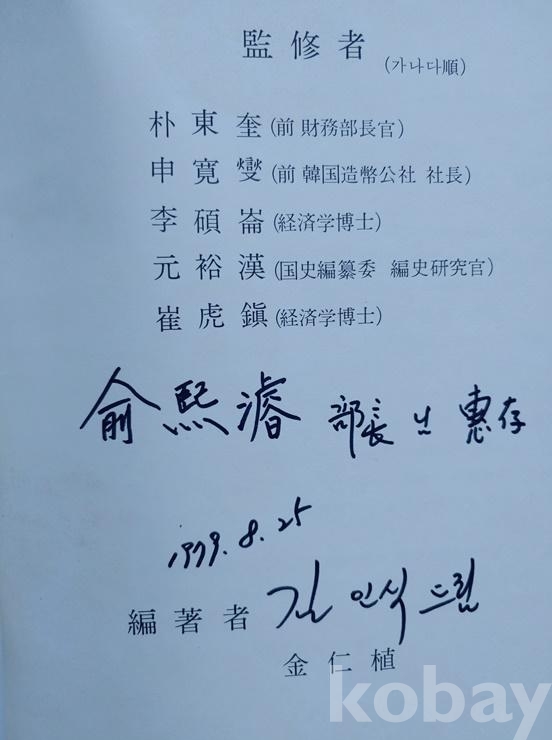 監修者
(가나다順)
朴東奎(前 財務部長官)
申寬燮(前 韓国造幣公社 社長)
李碩崙(経済学博士)
元裕漢(国史編纂委 編史研究官)
崔虎鎭(経済学博士)
兪熙濬 部長님 惠存
1979. 8. 25
編著者 김인식 드림
金仁植
kobay